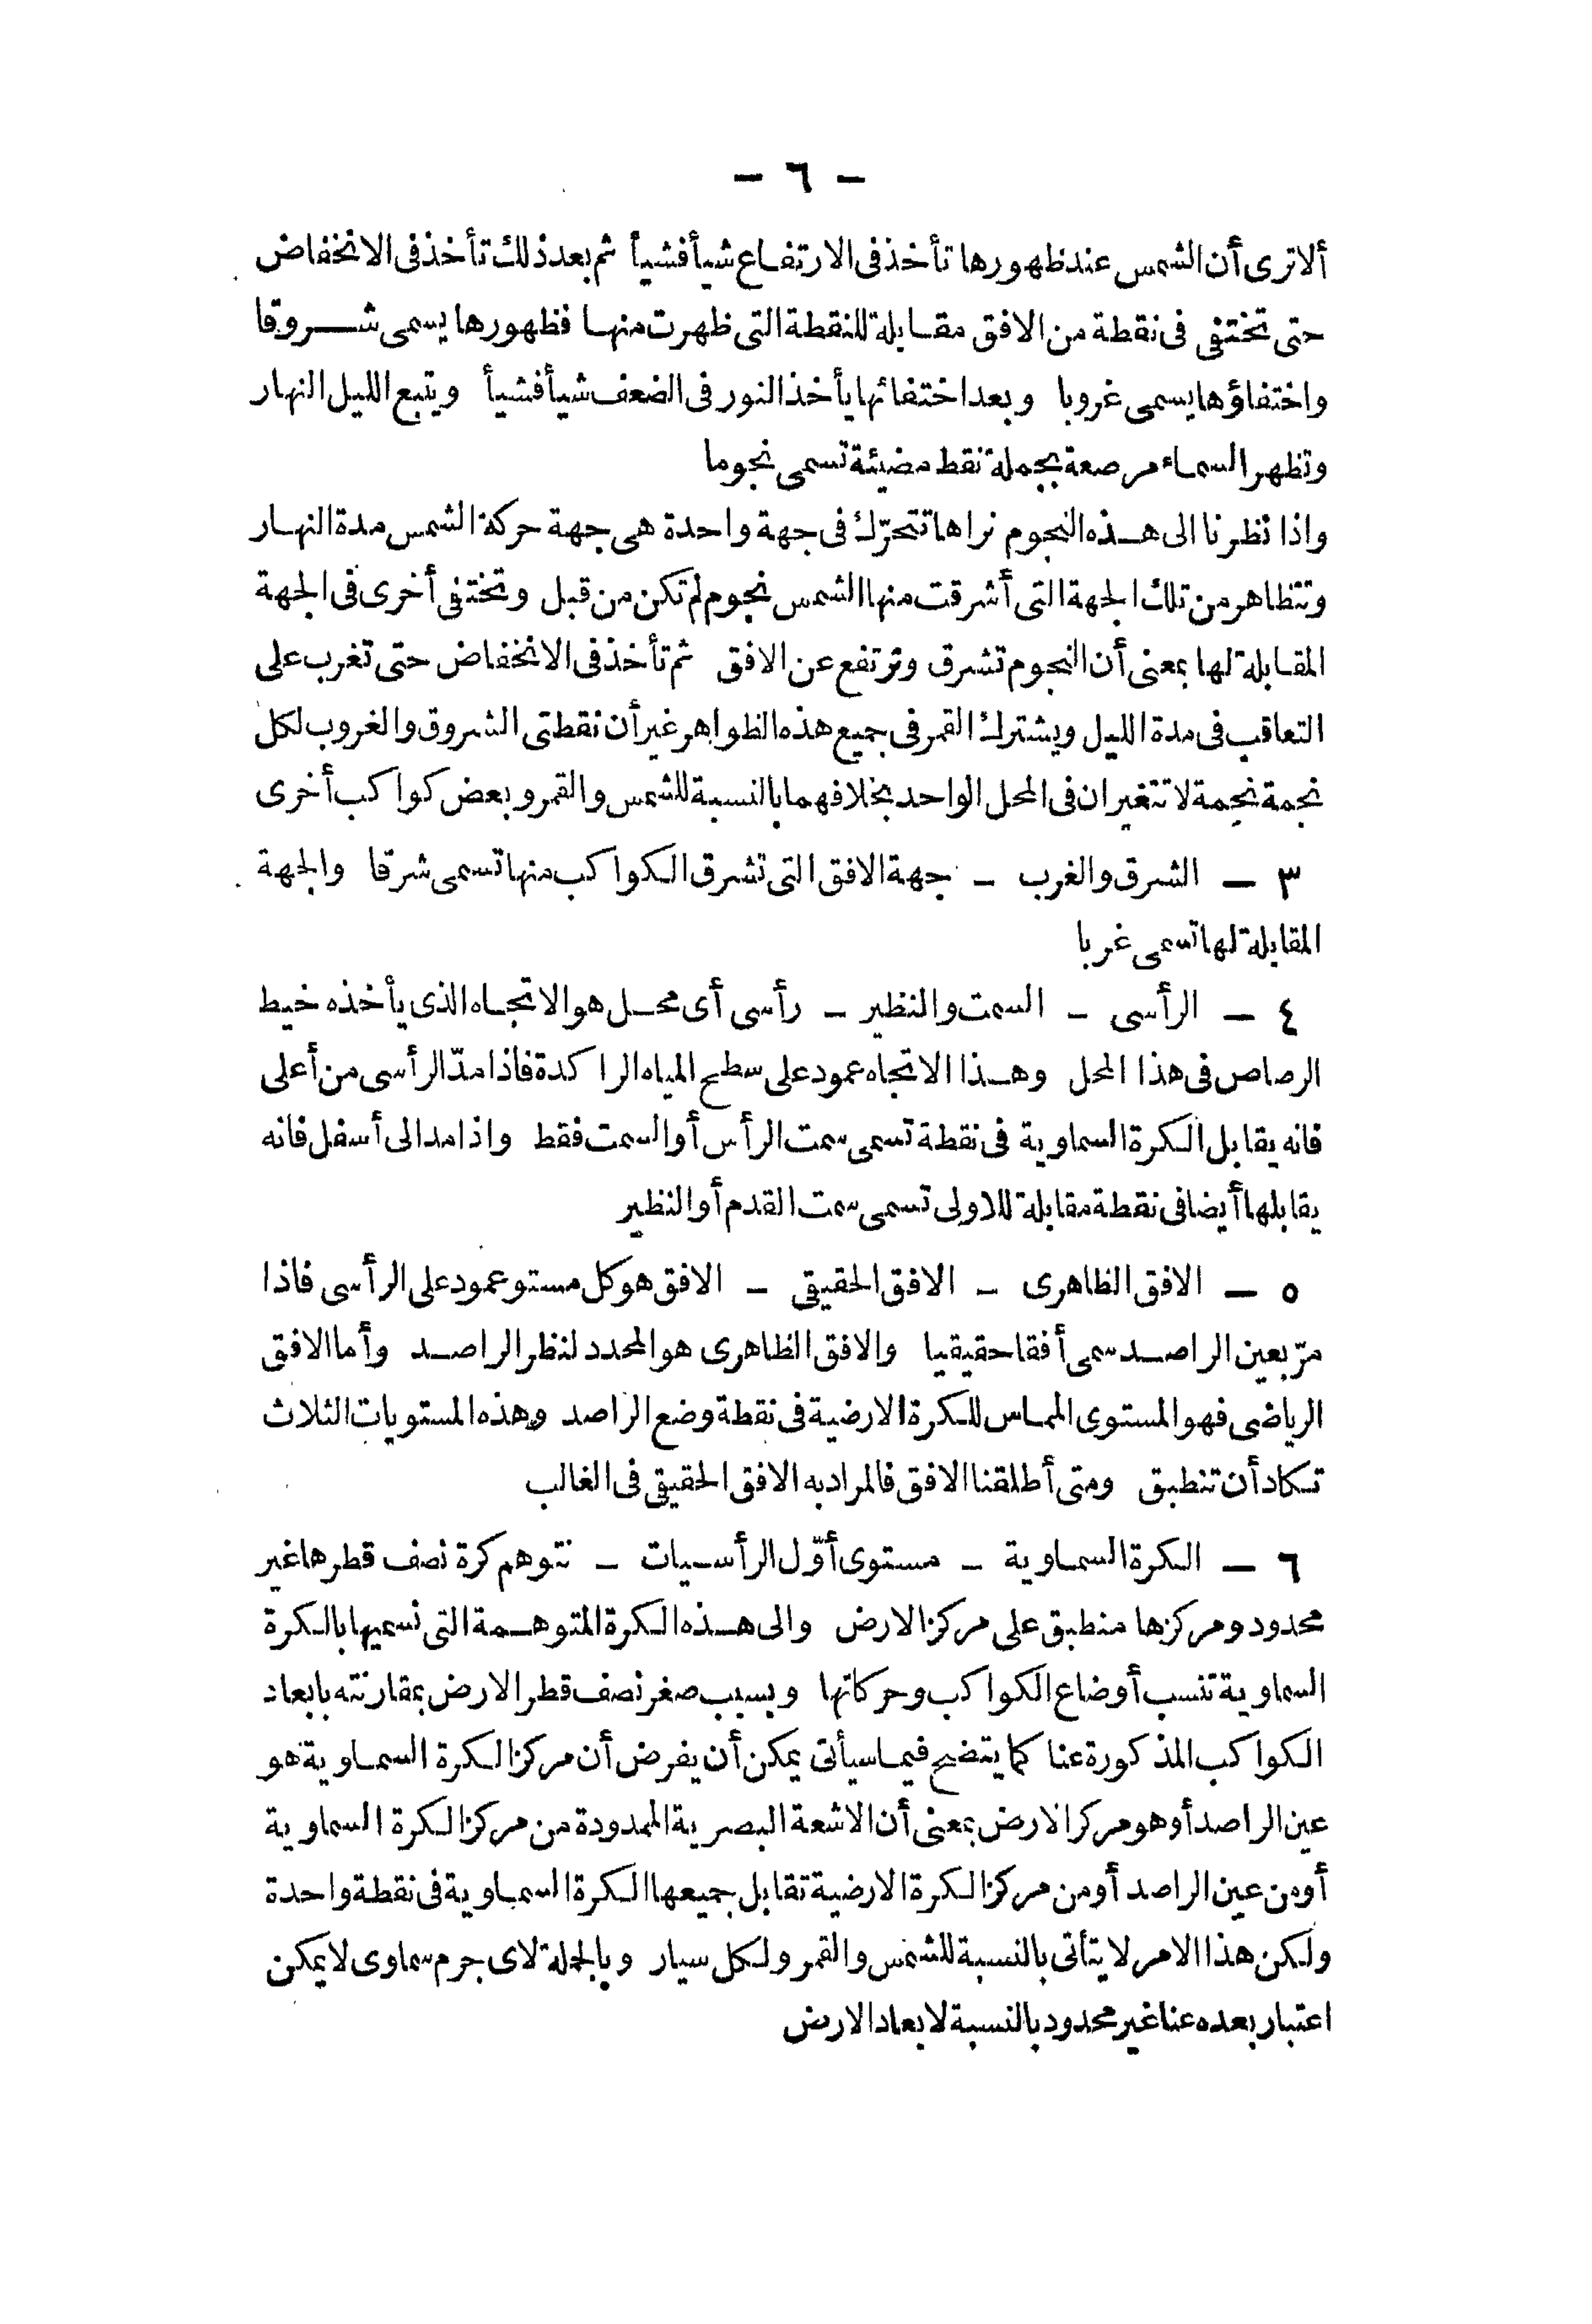 — ٦ —
ألا ترى أن الشمس عند ظهورها تأخذ فى الارتفاع شيأ فشيأ ثم بعد ذلك تأخذ فى الانخفاض
حتى تختفى فى نقطة من الافق مقابلة للنقطة التى ظهرت منها فظهورها يسمى شروقا
واختفاؤها يسمى غروبا وبعد اختفائها يأخذ النور فى الضعف شيأ فشيأ ويتبع الليل النهار
وتظهر السماء مرصعة بجملة نقط مضيئة تسمى نجوما
واذا نظرنا الى هذه النجوم نراها تتحرّك فى جهة واحدة هى جهة حركة الشمس مدة النهار
وتتظاهر من تلك الجهة التى أشرقت منها الشمس نجوم لم تكن من قبل وتختفى أخرى فى الجهة
المقابلة لها بمعنى أن النجوم تشرق وترتفع عن الافق ثم تأخذ فى الانخفاض حتى تغرب على
التعاقب فى مدة الليل ويشترك القمر فى جميع هذه الظواهر غير أن نقطتى الشروق والغروب لكل
نجمة نجمة لا تتغيران فى المحل الواحد بخلافهما بالنسبة للشمس والقمر وبعض كواكب أخرى
٣ — الشرق والغرب — جهة الافق التى تشرق الكواكب منها تسمى شرقا والجهة
المقابلة لها تسمى غربا
٤ — الرأسى — السمت والنظير — رأسى أى محل هو الاتجاه الذى يأخذه خيط
الرصاص فى هذا المحل وهذا الاتجاه عمود على سطح المياه الراكدة فاذا مدّ الرأسى من أعلى
فانه يقابل الكرة السماوية فى نقطة تسمى سمت الرأس أو السمت فقط واذا مد الى أسفل فانه
يقابلها أيضا فى نقطة مقابلة للاولى تسمى سمت القدم أو النظير
٥ — الافق الظاهرى — الافق الحقيقى — الافق هو كل مستو عمود على الرأسى فاذا
مرّ بعين الراصد سمى أفقا حقيقيا والافق الظاهرى هو المحدد لنظر الراصد وأما الافق
الرياضى فهو المستوى المماس للكرة الارضية فى نقطة وضع الراصد وهذه المستويات الثلاث
تكاد أن تنطبق ومتى أطلقنا الافق فالمراد به الافق الحقيقى فى الغالب
٦ — الكرة السماوية — مستوى أوّل الرأسيات — نتوهم كرة نصف قطرها غير
محدود ومركزها منطبق على مركز الارض والى هذه الكرة المتوهمة التى نسميها بالكرة
السماوية تنسب أوضاع الكواكب وحركاتها وبسبب صغر نصف قطر الارض بمقارنته بابعاد
الكواكب المذكورة عنا كما يتضح فيما سيأتى يمكن أن يفرض أن مركز الكرة السماوية هو
عين الراصد أو هو مركز الارض بمعنى أن الاشعة البصرية الممدودة من مركز الكرة السماوية
أو من عين الراصد أو من مركز الكرة الارضية تقابل جميعها الكرة السماوية فى نقطة واحدة
ولكن هذا الامر لا يتأتى بالنسبة للشمس والقمر ولكل سيار وبالجملة لاى جرم سماوى لا يمكن
اعتبار بعده عنا غير محدود بالنسبة لابعاد الارض